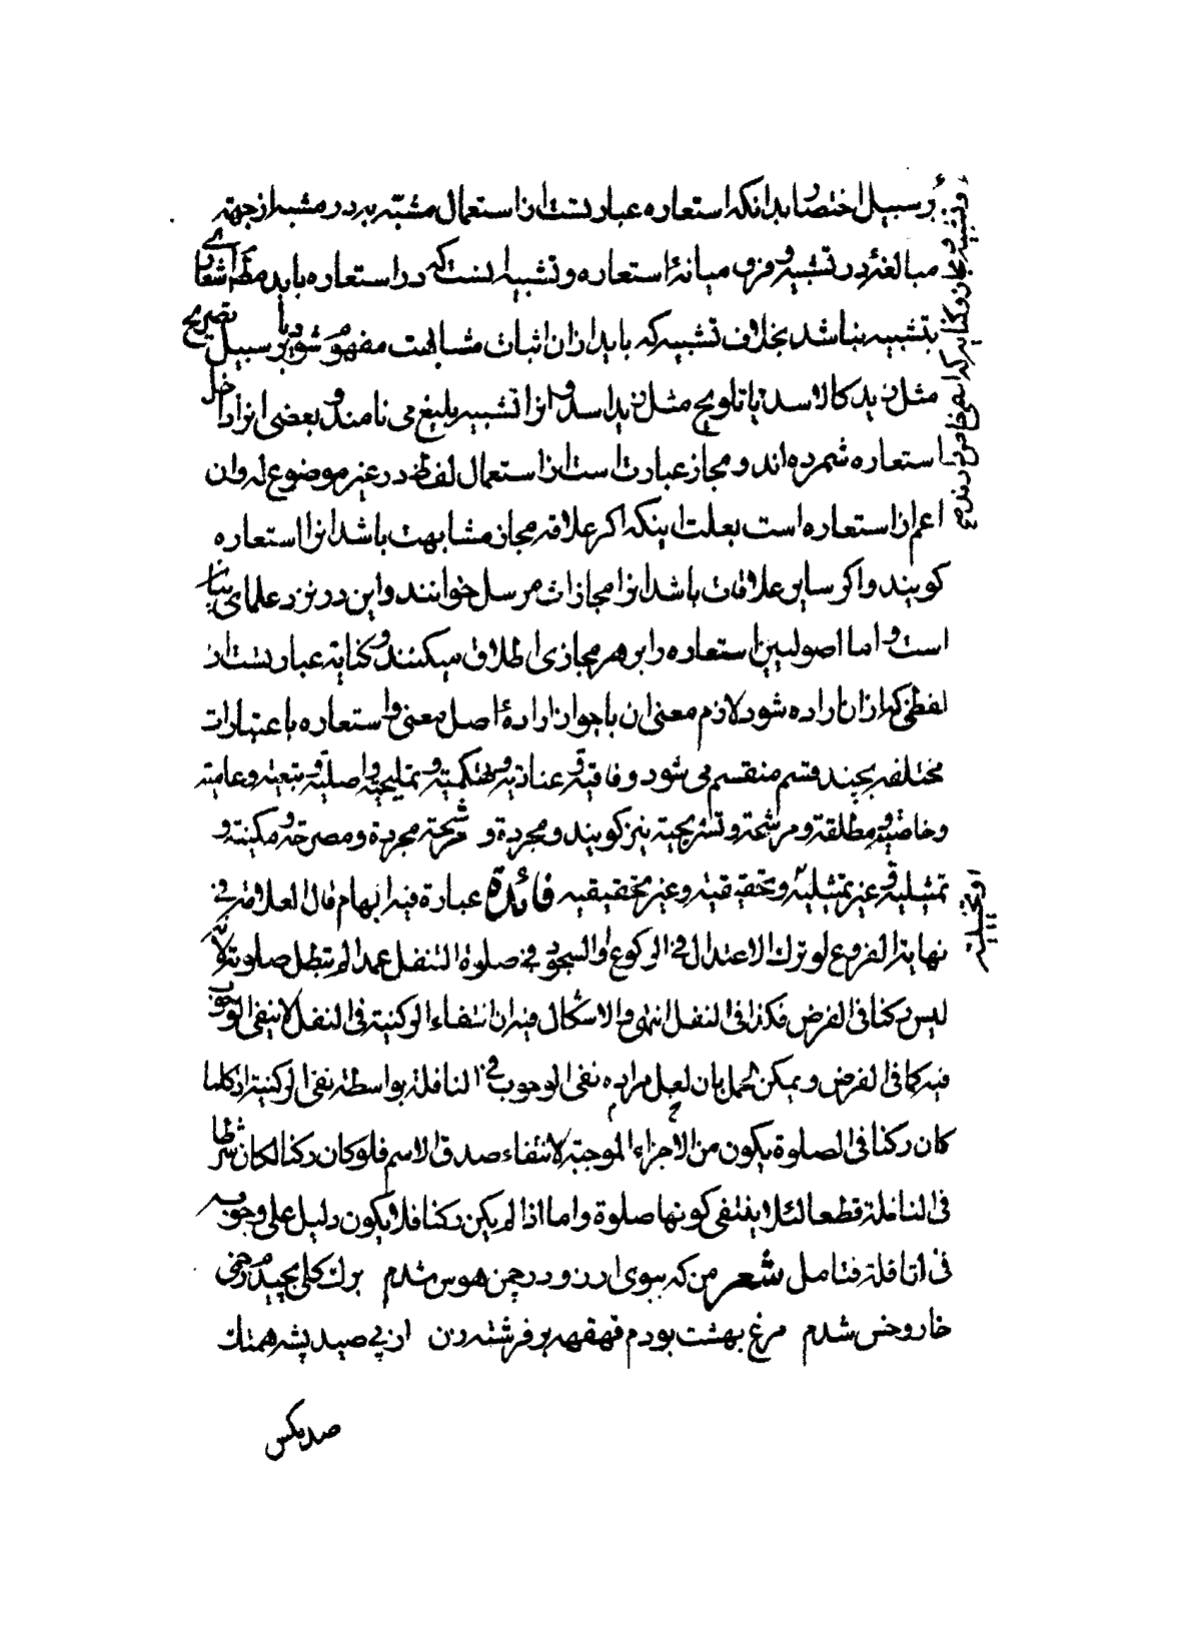 بر سبیل اختصار بدانکه استعاره عبارتست از استعمال مشبّه به در مشبه از جهة
مبالغهٔ در تشبیه و فرق میانهٔ استعاره و تشبیه انست که در استعاره باید مطلقا اشعاری
بتشبیه نباشد بخلاف تشبیه که باید ازان اثبات مشابهت مفهوم شود یا بر سبیل تصریح
مثل زید کالاسد یا تلویح مثل زید اسد و انرا تشبیه بلیغ می نامند و بعضی انرا داخل
استعاره شمرده اند و مجاز عبارت است از استعمال لفظ در غیر موضوع له وان
اعم از استعاره است بعلت اینکه اکر علاقه مجاز مشابهت باشد انرا استعاره
کویند واکر سایر علاقات باشد انرا مجازات مرسل خوانند و این در نزد علمای بیان
است و اما اصولیین استعاره را بر هر مجازی اطلاق میکنند و کنایة عبارتست از
لفظی که ازان اراده شود لازم معنی ان با جواز ارادهٔ اصل معنی و استعاره باعتبارات
مختلفه بچند قسم منقسم می شود وفاقیة و عنادیة و تهکمیة و تملیحیة و اصلیة و تبعیة و عامیة
و خاصیة و مطلقة و مرشحة و ترشیحیة نیز کویند و مجردة و مرشحة مجردة و مصرحة و مکنیة و
تمثیلیة و غیر تمثیلیة و تحقیقیة و غیر تحقیقیه فائدة عبارة فیه ابهام قال العلامة فی
نهایة الفروع لو ترك الاعتدال فی الرکوع او السجود فی صلوة التنفل عمدا لم تبطل صلوته لانه
لیس رکنا فی الفرض فکذا فی النفل انتهی والاشکال فیه ان انتفاء الرکنیة فی النفل لا ینفی الوجوب
فیه کما فی الفرض و یمکن الحمل بان لعل مراده نفی الوجوب فی النافلة بواسطة نفی الرکنیة اذ کلما
کان رکنا فی الصلوة یکون من الاجزاء الموجبة لانتفاء صدق الاسم فلو کان رکنا لکان شرطا
فی النافلة قطعا لئلا ینتفی کونها صلوة و اما اذا لم یکن رکنا فلا یکون دلیل علی وجوبه
فی النافلة فتامل شعر من که ببوی ارزو در چمن هوس شدم برك کلی نچیدم و زخمی
خار و خس شدم مرغ بهشت بودم قهقهه بر فرشته زن از پی صید پشه همتك
صد مکس
و تشبیه و مجاز و کنایه کدام
او تخییلیة